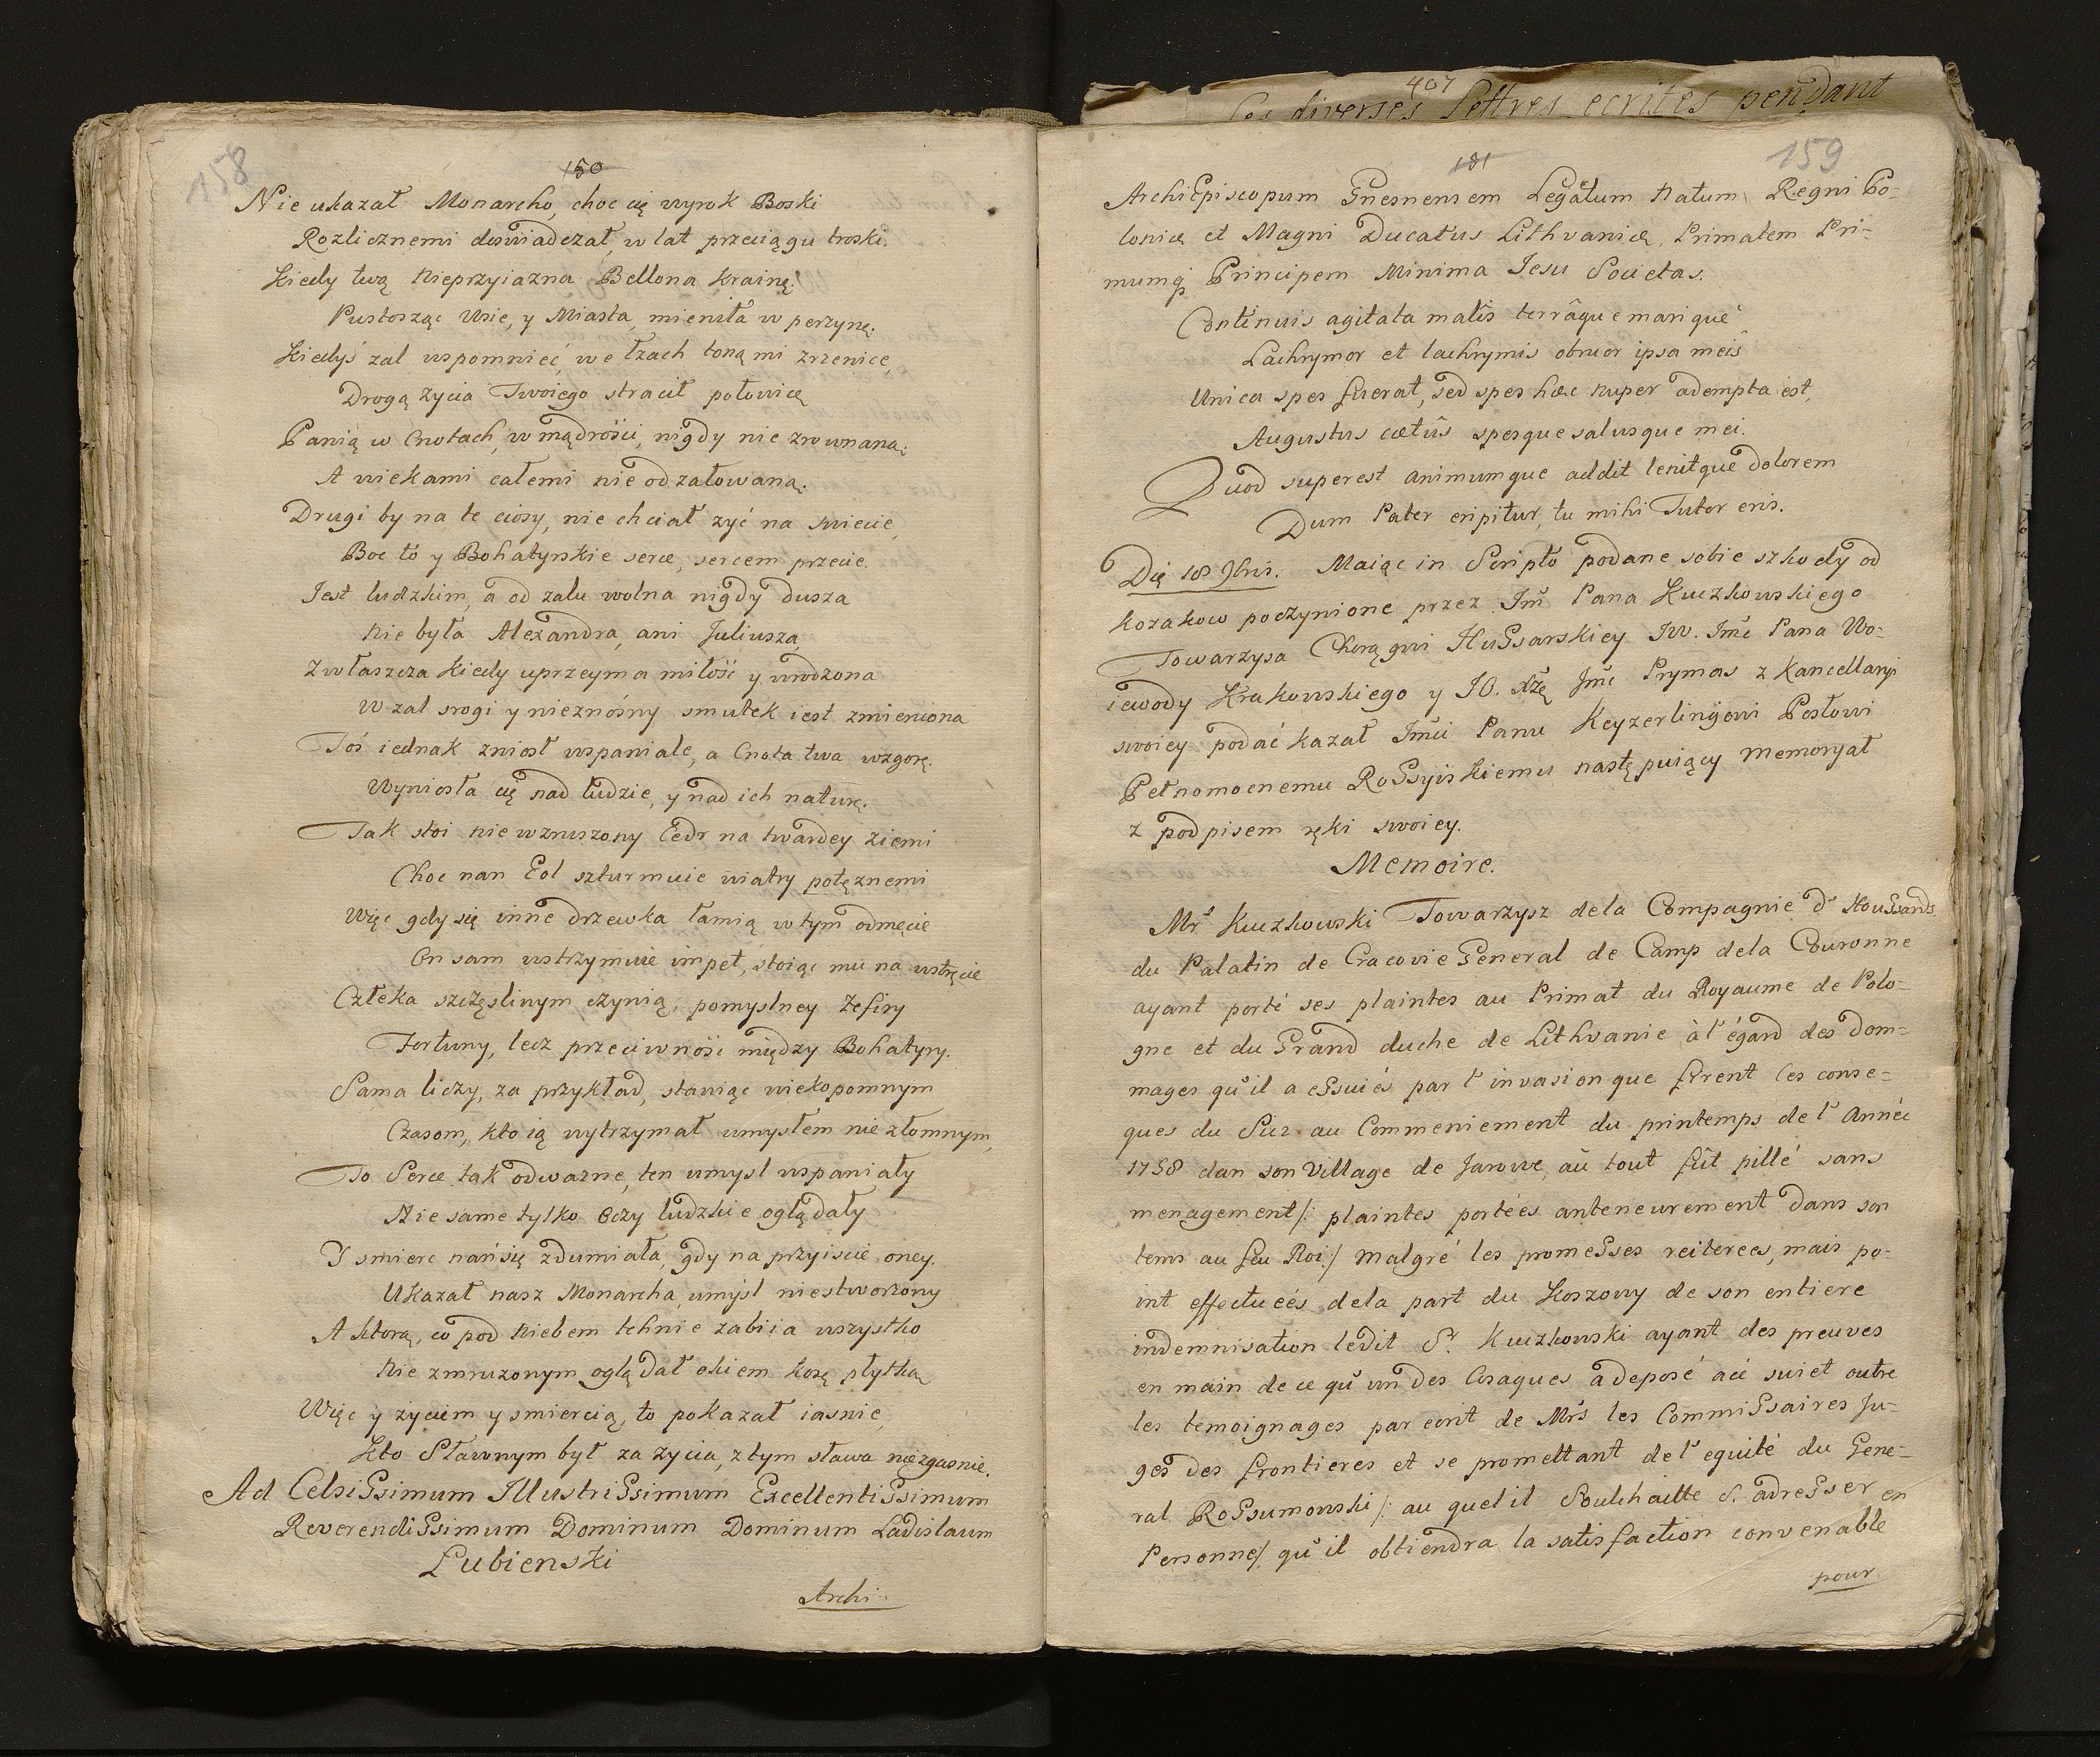 158
150
Nie ukazał Monarcho, choc cię wyrok Boski
Rozlicznemi doswiadczał, w lat przeciągu troski.
Kiedy twą nieprzyiazna Bellona krainę.
Pustosząc Wsie, y Miasta, mieniła w perzynę.
Kiedyś zal wspomnieć, we łzach toną mi zrzenice,
Drogą zycia Twoiego stracił połowicę
Panią w Cnotach, w mądrości, nigdy nie zrownaną;
A wiekami całemi nie odzałowaną.
Drugi by na te ciosy, nie chciał zyć na swiecie,
Boc to y Bohatyrskie serce, sercem przecie.
Jest ludzkim, a od zalu wolna nigdy dusza
Nie była Alexandra, ani Juliusza,
Zwłaszcza kiedy uprzeyma miłość y wrodzona
W zal srogi y nieznośny smutek iest zmieniona
Toś iednak zniosł wspaniale, a Cnota twa wzgorę.
Wyniosła cię nad ludzie, y nad ich naturę.
Tak stoi niewzruszony Cedr na twardey ziemi
Choc nan Eol szturmuie wiatry potęznemi
Więc gdy się inne drzewka łamią w tym odmęcie
On sam wstrzymuie impet, stoiąc mu na wstręcie
Człeka szczęsliwym czynią, pomyslney Zefiry
Fortuny, lecz przeciwność między Bohatyry.
Sama liczy, za przykład, stawiąc wiekopomnym
Czasom, kto ią wytrzymał umysłem niezłomnym,
To Serce tak odwazne, ten umysl wspaniały
Nie same tylko Oczy ludzkie oglądały
Y smierc nań się zdumiała, gdy na przyiscie oney.
Ukazał nasz Monarcha, umysl niestworzony
A ktorą, co pod Niebem tchnie zabiia wszystko
Nie zmruzonym oglądał okiem kosę płytką
Więc y zyciem y smiercią, to pokazał iasnie,
Kto Sławnym był za zycia, z tym sława nie zgasnie.
Ad Celsissimum Illustrissimum Excellentissimum
Reverendissimum Dominum Dominum Ladislaum
Lubienski
Archi
407
Les diverses Lettres ecrites pendant
159
181
ArchiEpiscopum Gnesnensem Legatum Natum Regni Po-
loniæ et Magni Ducatus Lithvaniæ, Primatem Pri-
mumq Principem Minima Jesu Societas.
Continuis agitata malis terrâque marique
Lachrymor et lachrymis obruor ipsa meis
Unica spes fuerat, sed spes hæc nuper adempta est,
Augustus cœtûs spesque salusque mei.
Quod superest animumque addit lenitque dolorem
Dum Pater eripitur, tu mihi Tutor eris.
Die 18 9bris. Maiąc in Scripto podane sobie szkody od
kozakow poczynione przez Jm̃ Pana Kuczkowskiego
Towarzysza Chorągwi Hussarskiey Jw. Jm̃ć Pana Wo-
iewody Krakowskiego y JO. Xżę Jm̃ć Prymas z Kancellaryi
swoiey podać kazał Jm̃ci Panu Keyzerlingowi Posłowi
Pełnomocnemu Rossyiskiemu następuiący memoryał
z podpisem ręki swoiey.
Memoire.
Mr Kuczkowski Towarzysz dela Compagnie d' Houssards
du Palatin de Cracovie General de Camp dela Couronne
ayant porté ses plaintes au Primat du Royaume de Polo-
gne et du Grand duche de Lithvanie à l' égard des dom-
mages qu'il a essuiés par l' invasion que firent les cosa-
ques du Sicz au Commeniement du printemps de l' Année
1758 dan son Village de Jarowe, aû tout fût pillé sans
menagement /: plaintes portées anterieurement dans son
tems au feu Roi :/ malgré les promesses reiterees, mais po-
int effectueés dela part du Koszowy de son entiere
indemnisation ledit Sr. Kuczkowski ayant des preuves
en main de ce qu'un des Cosaques a deposé acé suiet outre
les temoignages par ecrit de Mrs les Commissaires Ju-
ges des frontieres et se promettant de l' equité du Gene-
ral Rossumowski /: au quel il Souhhaitte S. adresser en
Personne :/ qu'il obtiendra la satisfaction convenable
pour